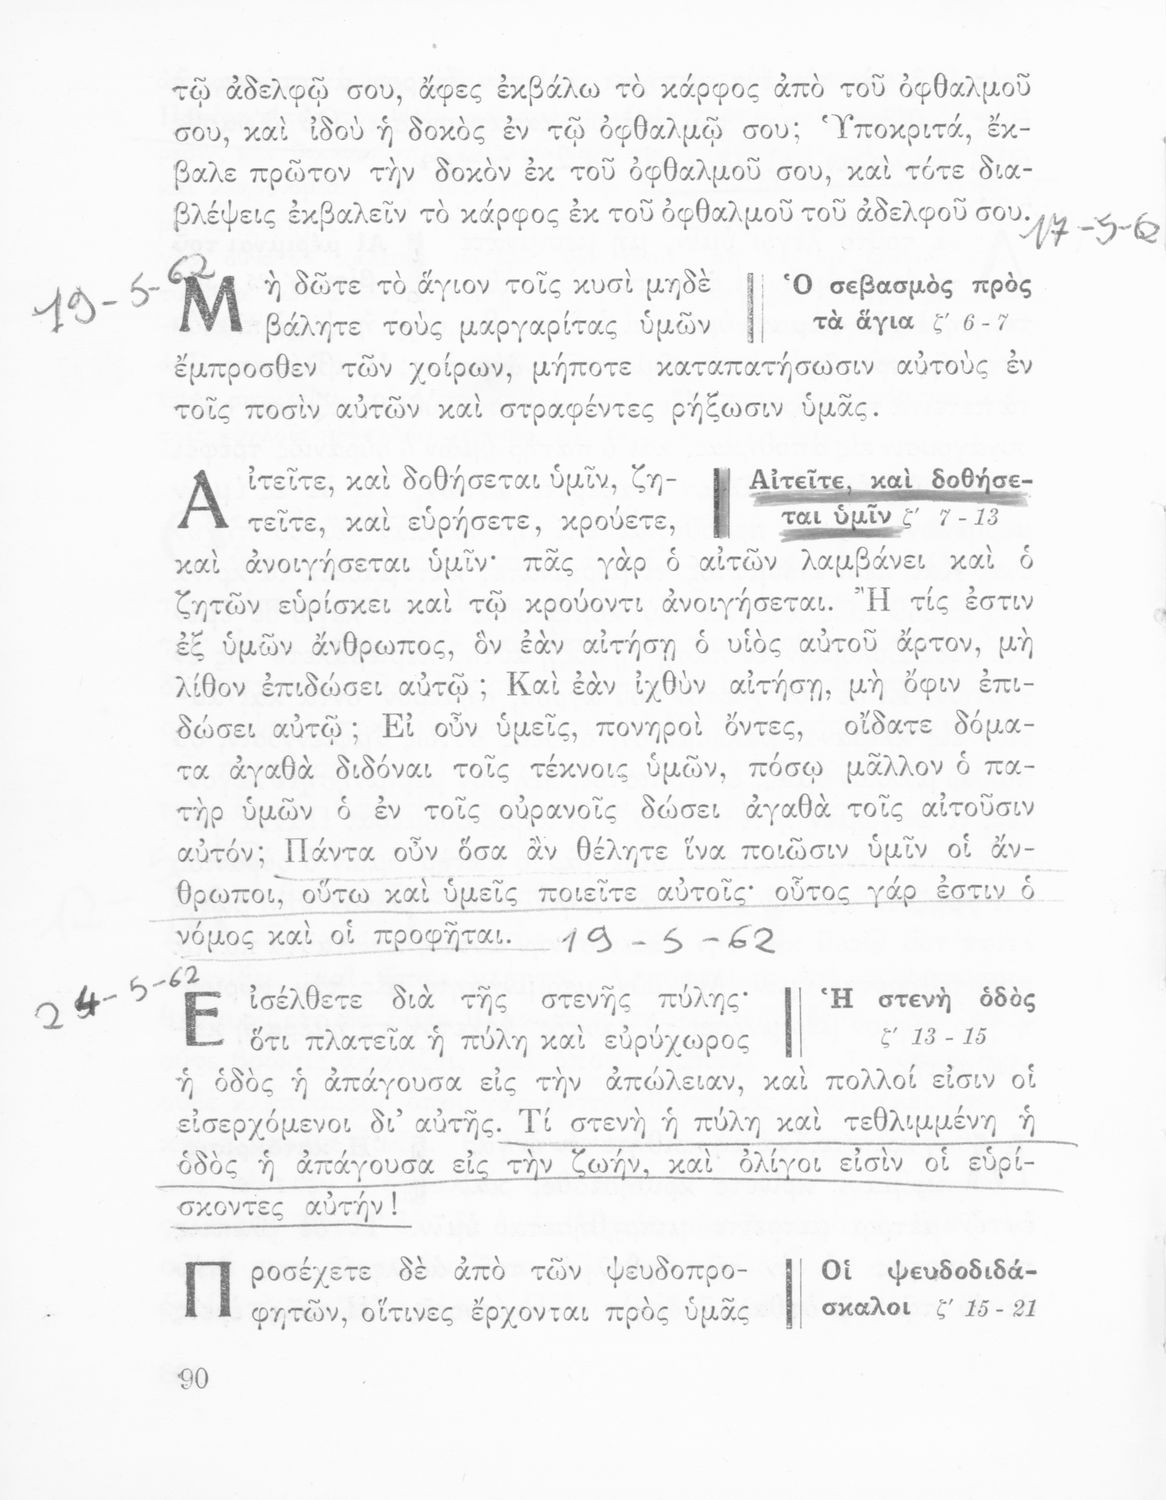 τῷ ἀδελφῷ σου, ἄφες ἐκβάλω τὸ κάρφος ἀπὸ τοῦ ὀφθαλμοῦ
σου, καὶ ἰδοὺ ἡ δοκὸς ἐν τῷ ὀφθαλμῷ σου; Ὑποκριτά, ἔκ-
βαλε πρῶτον τὴν δοκὸν ἐκ τοῦ ὀφθαλμοῦ σου, καὶ τότε δια-
βλέψεις ἐκβαλεῖν τὸ κάρφος ἐκ τοῦ ὀφθαλμοῦ τοῦ ἀδελφοῦ σου.
17-5-62
19-5-62
Μὴ δῶτε τὸ ἅγιον τοῖς κυσὶ μηδὲ
βάλητε τοὺς μαργαρίτας ὑμῶν
Ὁ σεβασμὸς πρὸς
τὰ ἅγια ζ' 6-7
ἔμπροσθεν τῶν χοίρων, μήποτε καταπατήσωσιν αὐτοὺς ἐν
τοῖς ποσὶν αὐτῶν καὶ στραφέντες ρήξωσιν ὑμᾶς.
Αἰτεῖτε, καὶ δοθήσεται ὑμῖν, ζη-
τεῖτε, καὶ εὑρήσετε, κρούετε,
Αἰτεῖτε, καὶ δοθήσε-
ται ὑμῖν ζ' 7-13
καὶ ἀνοιγήσεται ὑμῖν· πᾶς γὰρ ὁ αἰτῶν λαμβάνει καὶ ὁ
ζητῶν εὑρίσκει καὶ τῷ κρούοντι ἀνοιγήσεται. Ἢ τίς ἐστιν
ἐξ ὑμῶν ἄνθρωπος, ὃν ἐὰν αἰτήσῃ ὁ υἱὸς αὐτοῦ ἄρτον, μὴ
λίθον ἐπιδώσει αὐτῷ; Καὶ ἐὰν ἰχθὺν αἰτήσῃ, μὴ ὄφιν ἐπι-
δώσει αὐτῷ; Εἰ οὖν ὑμεῖς, πονηροὶ ὄντες, οἴδατε δόμα-
τα ἀγαθὰ διδόναι τοῖς τέκνοις ὑμῶν, πόσῳ μᾶλλον ὁ πα-
τὴρ ὑμῶν ὁ ἐν τοῖς οὐρανοῖς δώσει ἀγαθὰ τοῖς αἰτοῦσιν
αὐτόν; Πάντα οὖν ὅσα ἂν θέλητε ἵνα ποιῶσιν ὑμῖν οἱ ἄν-
θρωποι, οὕτω καὶ ὑμεῖς ποιεῖτε αὐτοῖς· οὗτος γάρ ἐστιν ὁ
νόμος καὶ οἱ προφῆται. 19-5-62
24-5-62
Εἰσέλθετε διὰ τῆς στενῆς πύλης·
ὅτι πλατεῖα ἡ πύλη καὶ εὐρύχωρος
Ἡ στενὴ ὁδὸς
ζ' 13-15
ἡ ὁδὸς ἡ ἀπάγουσα εἰς τὴν ἀπώλειαν, καὶ πολλοί εἰσιν οἱ
εἰσερχόμενοι δι' αὐτῆς. Τί στενὴ ἡ πύλη καὶ τεθλιμμένη ἡ
ὁδὸς ἡ ἀπάγουσα εἰς τὴν ζωήν, καὶ ὀλίγοι εἰσὶν οἱ εὑρί-
σκοντες αὐτήν!
Προσέχετε δὲ ἀπὸ τῶν ψευδοπρο-
φητῶν, οἵτινες ἔρχονται πρὸς ὑμᾶς
Οἱ ψευδοδιδά-
σκαλοι ζ' 15-21
90